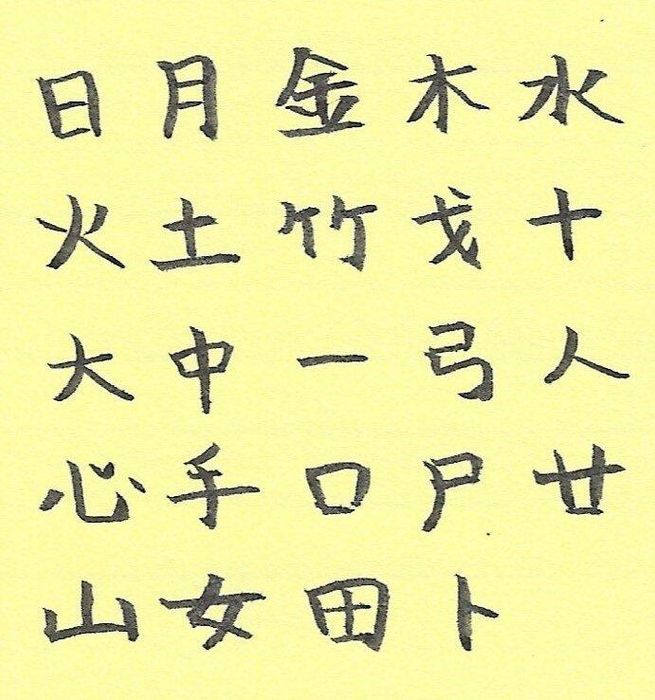 日 月 金 木 水
火 土 竹 戈 十
大 中 一 弓 人
心 手 口 尸 廿
山 女 田 卜